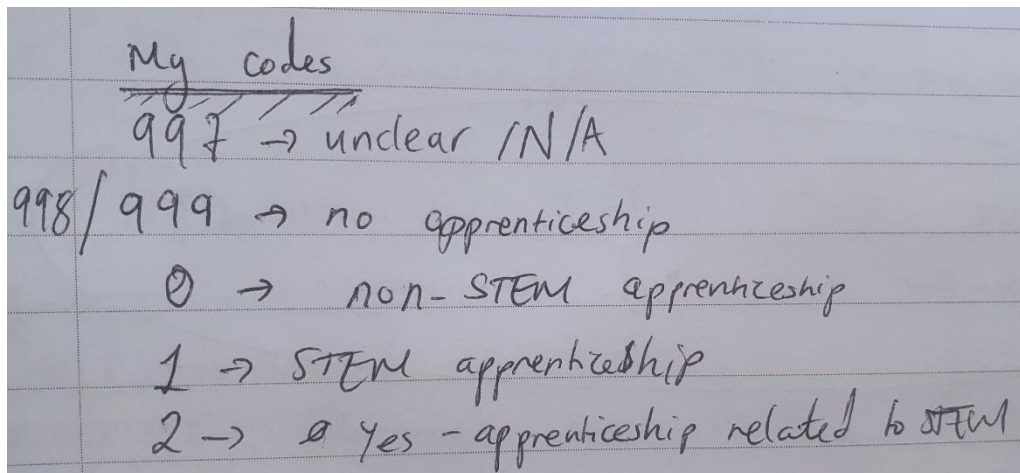 My codes
997 → unclear /N/A
998/999 → no apprenticeship
0 → non-STEM apprenticeship
1 → STEM apprenticeship
2 → Yes - apprenticeship related to STEM